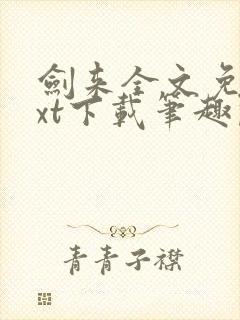 劍来全文免
xt下載筆趣
青青子襟